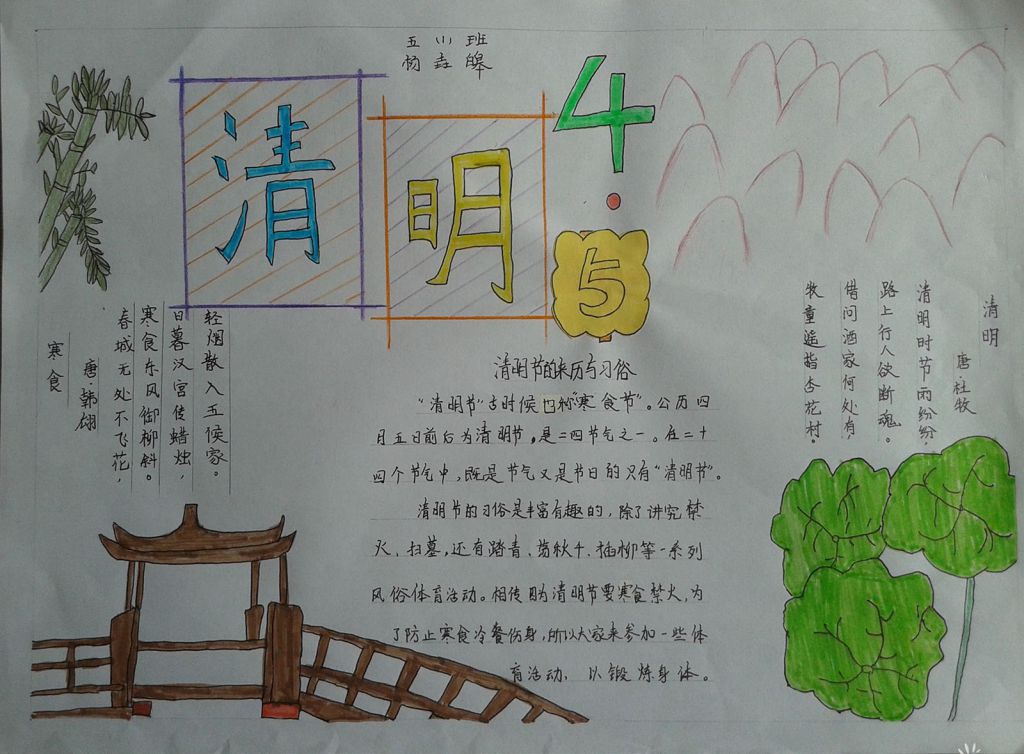 五（1）班
杨垚皞
清明
4·5
清明
唐·杜牧
清明时节雨纷纷，
路上行人欲断魂。
借问酒家何处有，
牧童遥指杏花村。
寒食
唐·韩翃
春城无处不飞花，
寒食东风御柳斜。
日暮汉宫传蜡烛，
轻烟散入五侯家。
清明节的来历与习俗
“清明节”古时候也称“寒食节”。公历四
月五日前后为清明节，是二四节气之一。在二十
四个节气中，既是节气又是节日的只有“清明节”。
清明节的习俗是丰富有趣的，除了讲究禁
火、扫墓，还有踏青、荡秋千、插柳等一系列
风俗体育活动。相传因为清明节要寒食禁火，为
了防止寒食冷餐伤身，所以大家来参加一些体
育活动，以锻炼身体。